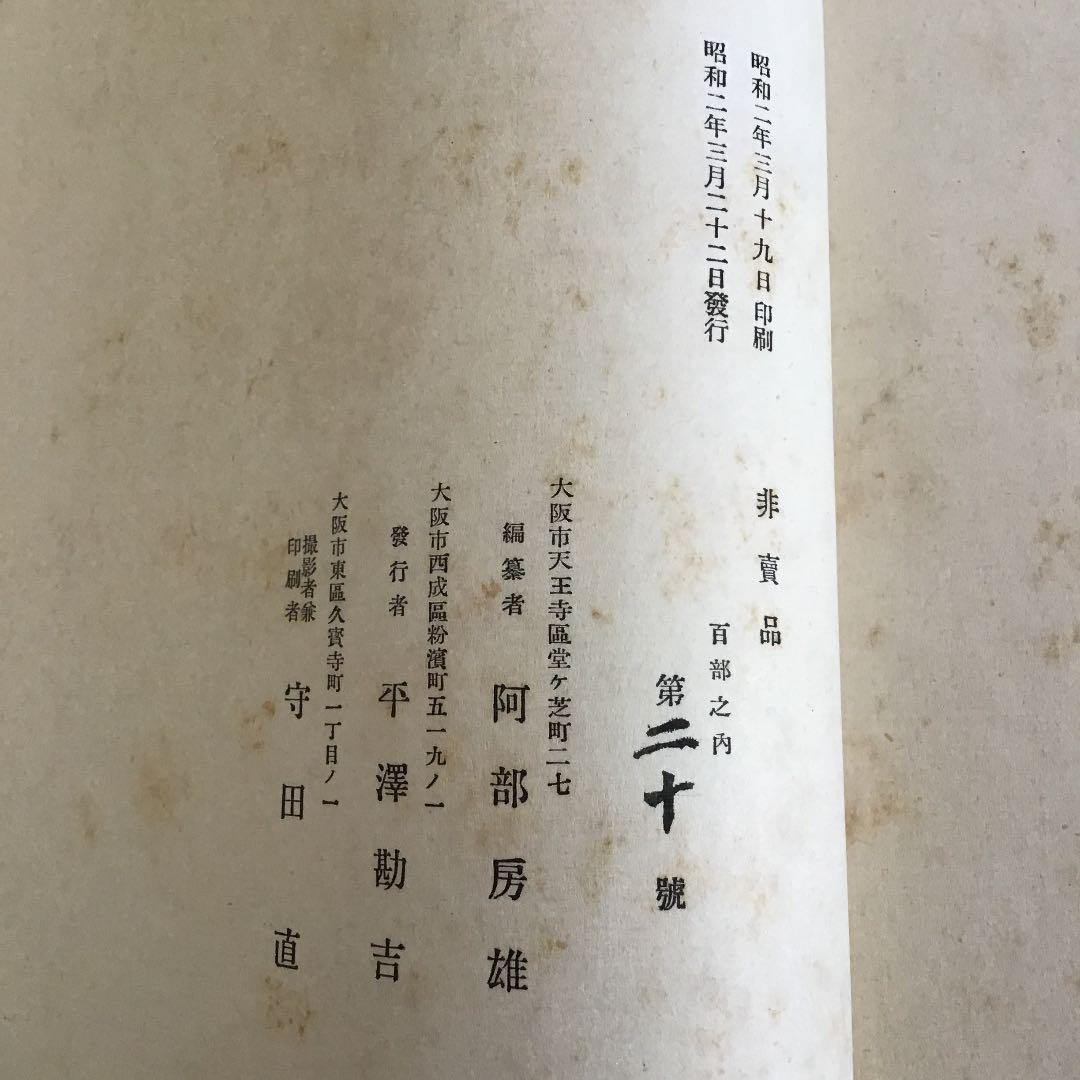 昭和二年三月十九日印刷
昭和二年三月二十二日發行
非賣品
百部之內
第二十號
大阪市天王寺區堂ヶ芝町二七
編纂者 阿部房雄
大阪市西成區粉濱町五一九ノ一
發行者 平澤勘吉
大阪市東區久寳寺町一丁目ノ一
撮影者兼
印刷者 守田直